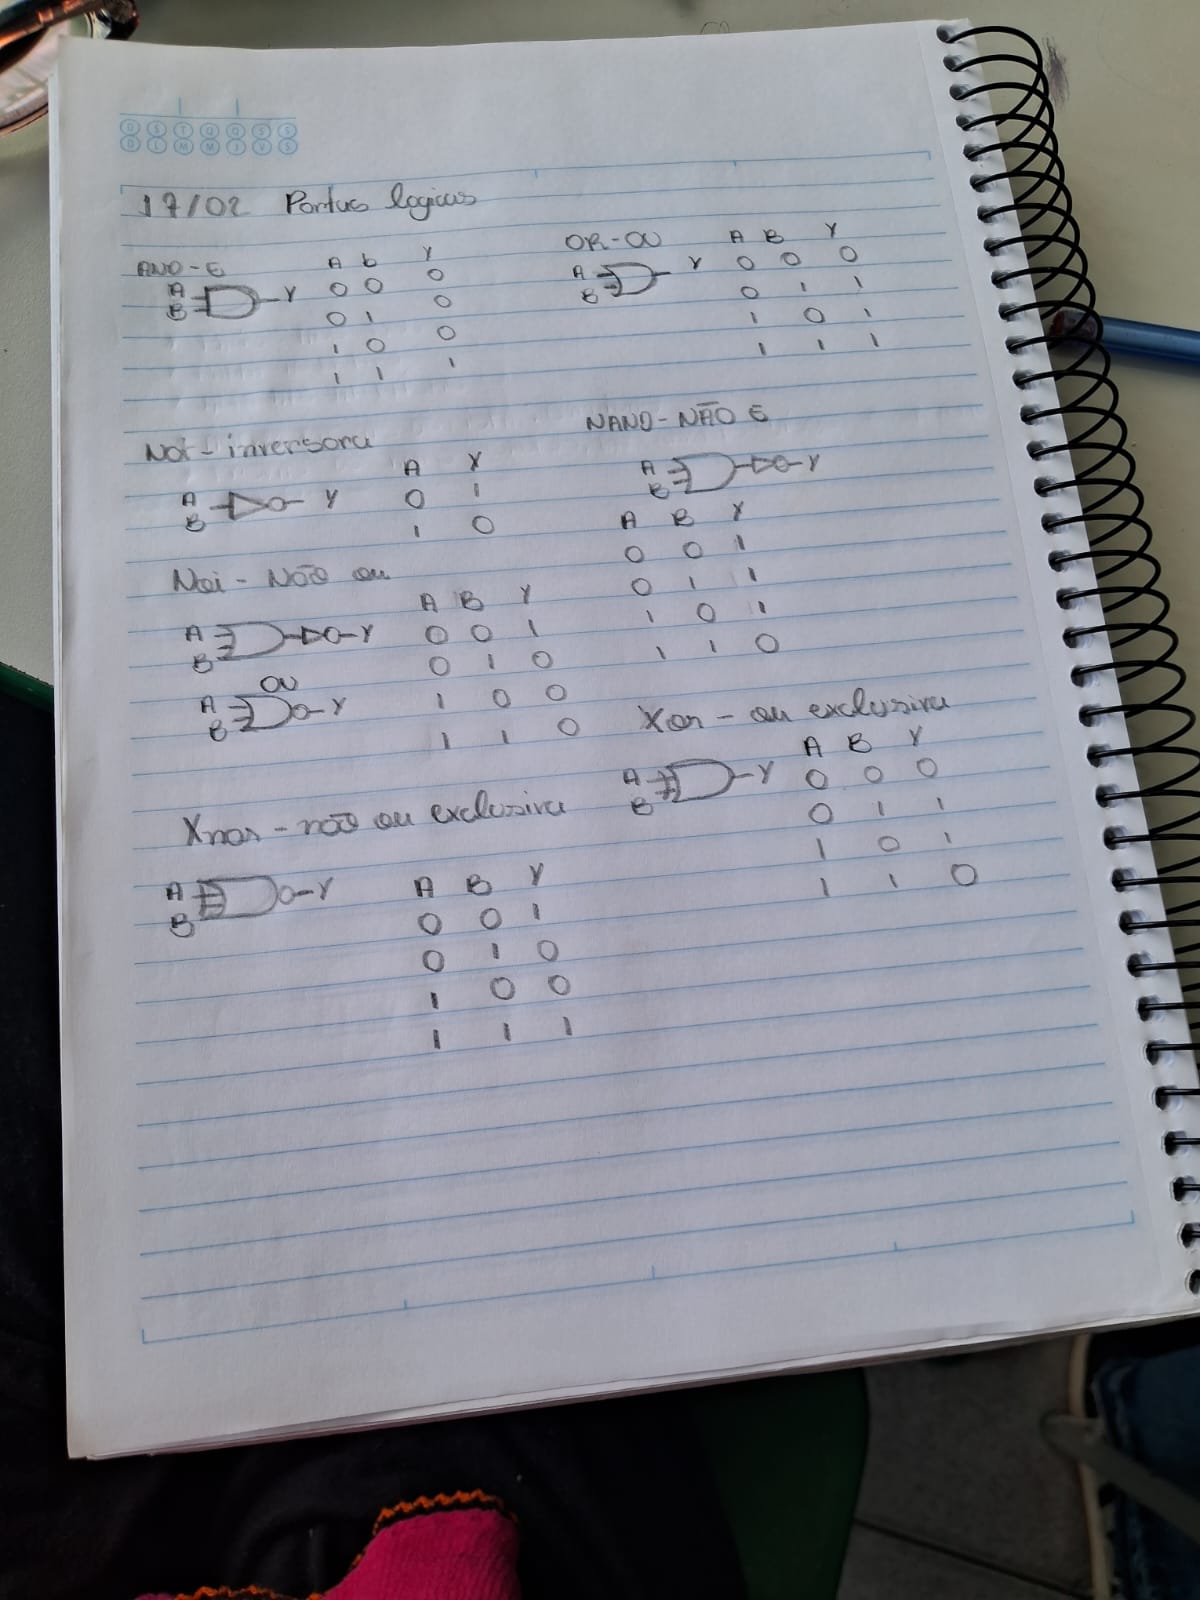 D S T Q Q S S
D L M M J V S
17/02 Portas logicas
AND-E
A b Y
A
B
Y
0 0 0
0 1 0
1 0 0
1 1 1
OR-OU
A B Y
A
B
Y
0 0 0
0 1 1
1 0 1
1 1 1
Not-inversora
A Y
A
B
Y
0 1
1 0
NAND-NÃO E
A
B
Y
A B Y
0 0 1
0 1 1
1 0 1
1 1 0
Noi - Não ou
A B Y
A
B
Y
OU
A
B
Y
0 0 1
0 1 0
1 0 0
1 1 0
Xor - ou exclusiva
A B Y
A
B
Y
0 0 0
0 1 1
1 0 1
1 1 0
Xnor - não ou exclusiva
A
B
Y
A B Y
0 0 1
0 1 0
1 0 0
1 1 1